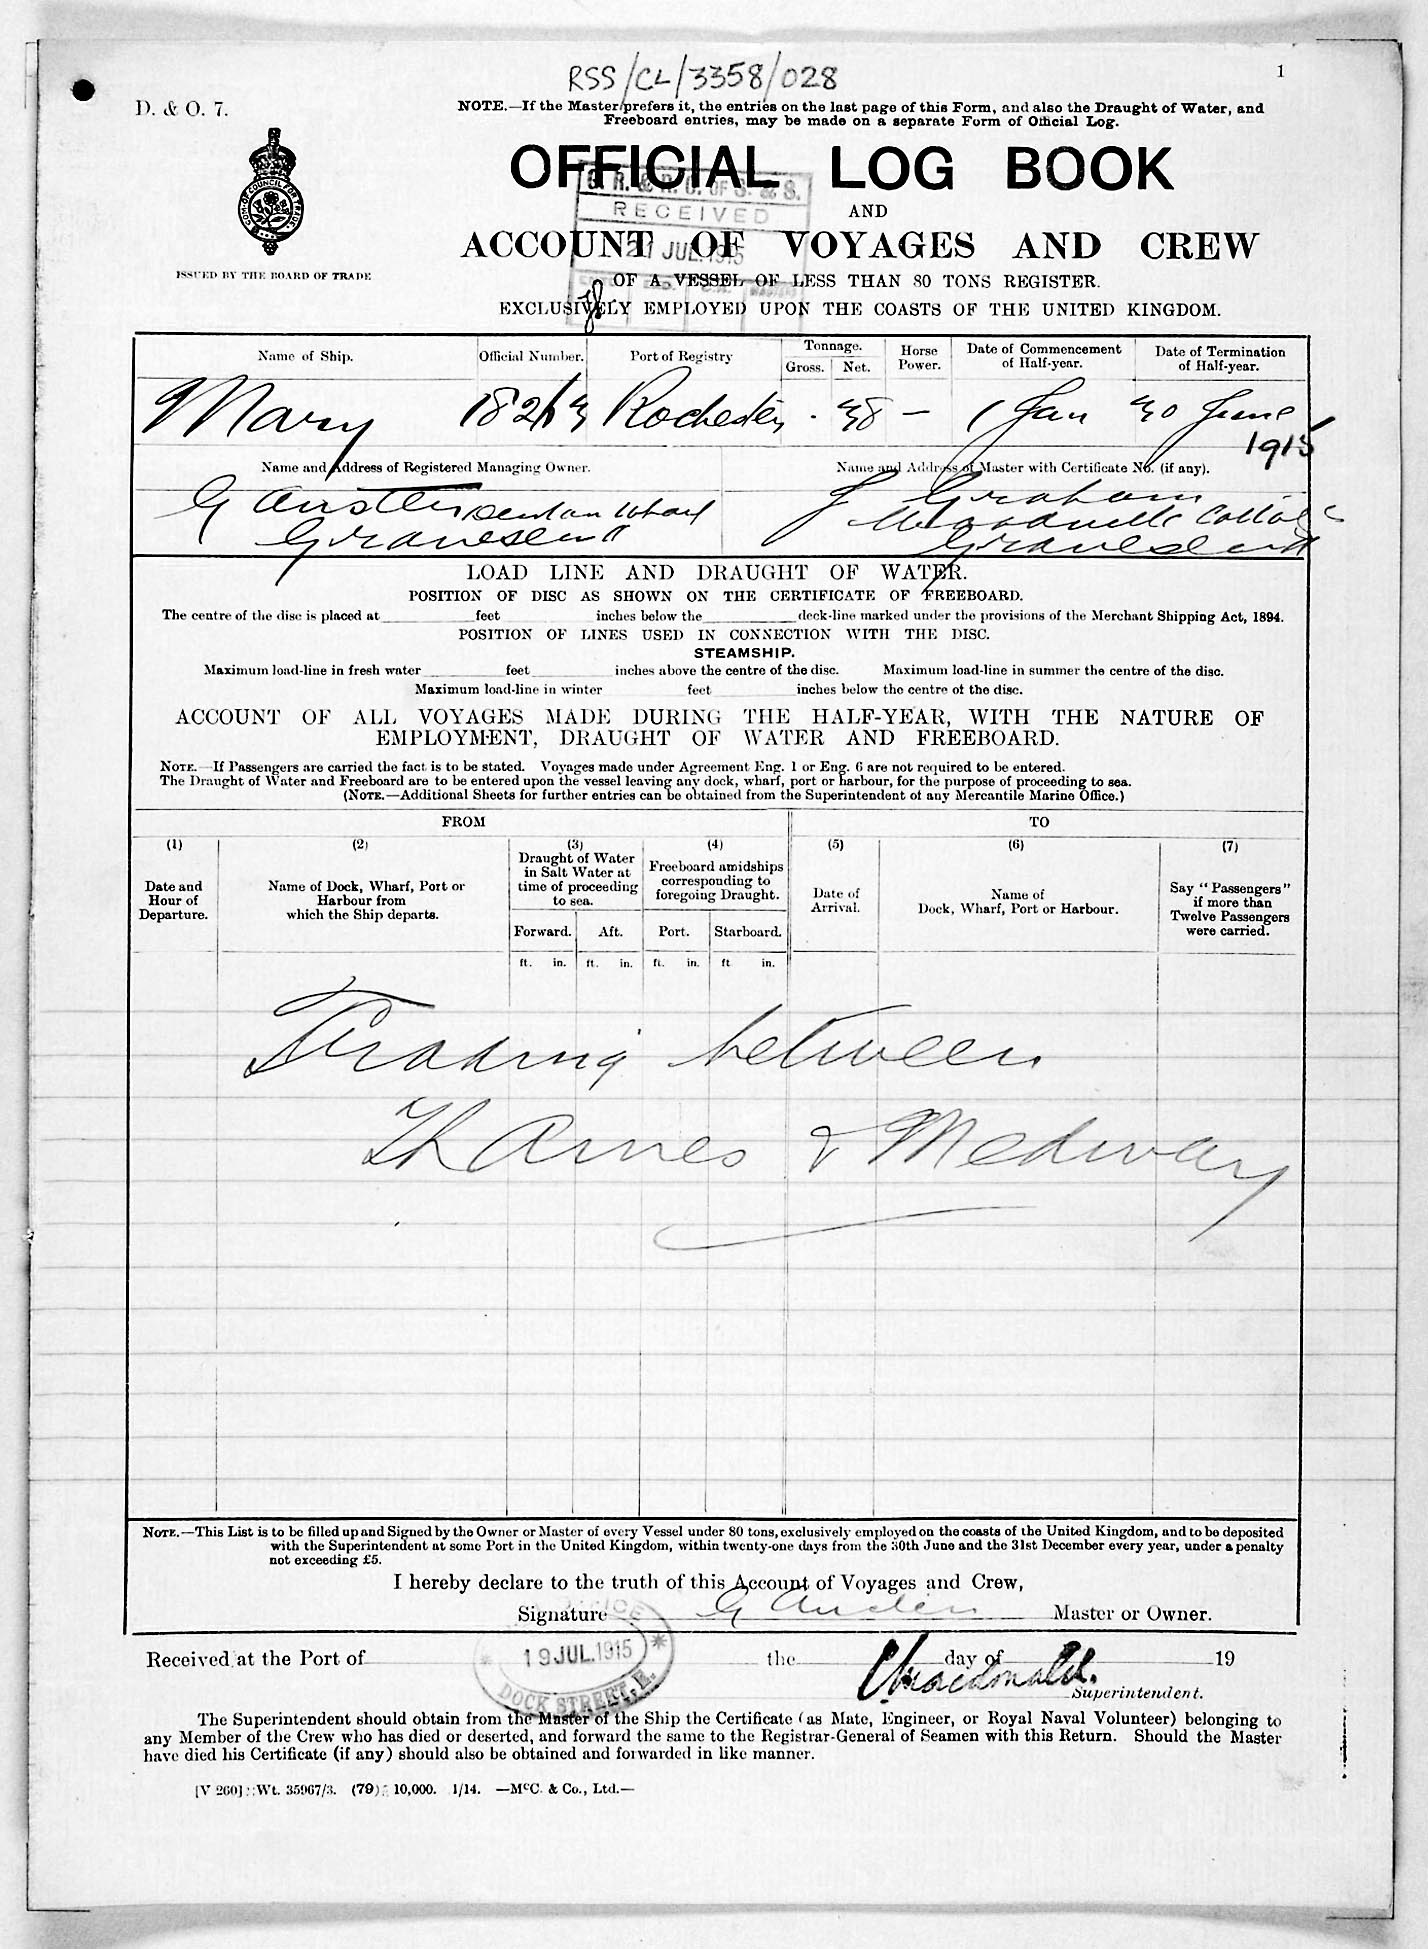 RSS/CL/3358/028
1
D. & O. 7.
NOTE.—If the Master prefers it, the entries on the last page of this Form, and also the Draught of Water, and
Freeboard entries, may be made on a separate Form of Official Log.
OFFICIAL LOG BOOK
RECEIVED
AND
21 JUL. 1915
ACCOUNT OF VOYAGES AND CREW
ISSUED BY THE BOARD OF TRADE
OF A VESSEL OF LESS THAN 80 TONS REGISTER.
EXCLUSIVELY EMPLOYED UPON THE COASTS OF THE UNITED KINGDOM.
Name of Ship. Official Number. Port of Registry Tonnage. Gross. Net. Horse Power. Date of Commencement of Half-year. Date of Termination of Half-year.
Mary Rochester 38 – 1 Jan 30 June
1915
Name and Address of Registered Managing Owner. Name and Address of Master with Certificate No. (if any).
G Austen Wharf J Graham
Gravesend Gravesend
LOAD LINE AND DRAUGHT OF WATER.
POSITION OF DISC AS SHOWN ON THE CERTIFICATE OF FREEBOARD.
The centre of the disc is placed at feet inches below the deck-line marked under the provisions of the Merchant Shipping Act, 1894.
POSITION OF LINES USED IN CONNECTION WITH THE DISC.
STEAMSHIP.
Maximum load-line in fresh water feet inches above the centre of the disc. Maximum load-line in summer the centre of the disc.
Maximum load-line in winter feet inches below the centre of the disc.
ACCOUNT OF ALL VOYAGES MADE DURING THE HALF-YEAR, WITH THE NATURE OF
EMPLOYMENT, DRAUGHT OF WATER AND FREEBOARD.
NOTE.—If Passengers are carried the fact is to be stated. Voyages made under Agreement Eng. 1 or Eng. 6 are not required to be entered.
The Draught of Water and Freeboard are to be entered upon the vessel leaving any dock, wharf, port or harbour, for the purpose of proceeding to sea.
(NOTE.—Additional Sheets for further entries can be obtained from the Superintendent of any Mercantile Marine Office.)
FROM TO
(1) (2) (3) (4) (5) (6) (7)
Date and Hour of Departure.
Name of Dock, Wharf, Port or Harbour from which the Ship departs.
Draught of Water in Salt Water at time of proceeding to sea.
Freeboard amidships corresponding to foregoing Draught.
Date of Arrival.
Name of Dock, Wharf, Port or Harbour.
Say "Passengers" if more than Twelve Passengers were carried.
Forward. Aft. Port. Starboard.
ft. in. ft. in. ft. in. ft in.
Trading between
Thames & Medway
NOTE.—This List is to be filled up and Signed by the Owner or Master of every Vessel under 80 tons, exclusively employed on the coasts of the United Kingdom, and to be deposited
with the Superintendent at some Port in the United Kingdom, within twenty-one days from the 30th June and the 31st December every year, under a penalty
not exceeding £5.
I hereby declare to the truth of this Account of Voyages and Crew,
Signature G Austen Master or Owner.
Received at the Port of the day of 19
19 JUL. 1915
DOCK STREET, E.
Superintendent.
The Superintendent should obtain from the Master of the Ship the Certificate (as Mate, Engineer, or Royal Naval Volunteer) belonging to
any Member of the Crew who has died or deserted, and forward the same to the Registrar-General of Seamen with this Return. Should the Master
have died his Certificate (if any) should also be obtained and forwarded in like manner.
[V 260] Wt. 35967/3. (79) 10,000. 1/14. —McC. & Co., Ltd.—